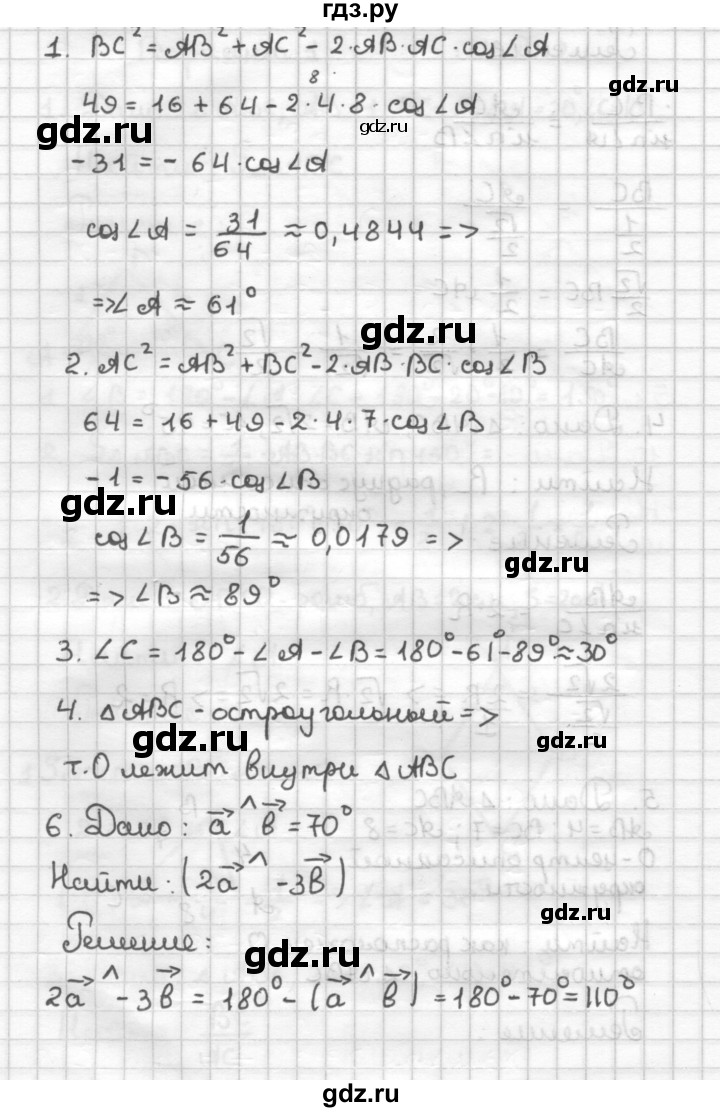 гдз.ру
1. BC² = AB² + AC² - 2·AB·AC·cos∠A
8
gdz.ru
49 = 16 + 64 - 2·4·8·cos∠A
gdz.ru
gdz.ru
-31 = -64·cos∠A
cos∠A = 31/64 ≈ 0,4844 =>
gdz.ru
=> ∠A ≈ 61°
gdz.ru
2. AC² = AB² + BC² - 2·AB·BC·cos∠B
64 = 16 + 49 - 2·4·7·cos∠B
-1 = -56·cos∠B
gdz.ru
cos∠B = 1/56 ≈ 0,0179 =>
gdz.ru
=> ∠B ≈ 89°
3. ∠C = 180° - ∠A - ∠B = 180° - 61° - 89° ≈ 30°
4. △ABC - остроугольный =>
gdz.ru
gdz.ru
т.O лежит внутри △ABC
6. Дано: a⃗ ^ b⃗ = 70°
Найти: (2a⃗ ^ -3b⃗)
gdz.ru
Решение:
gdz.ru
2a⃗ ^ -3b⃗ = 180° - (a⃗ ^ b⃗) = 180° - 70° = 110°
gdz.ru